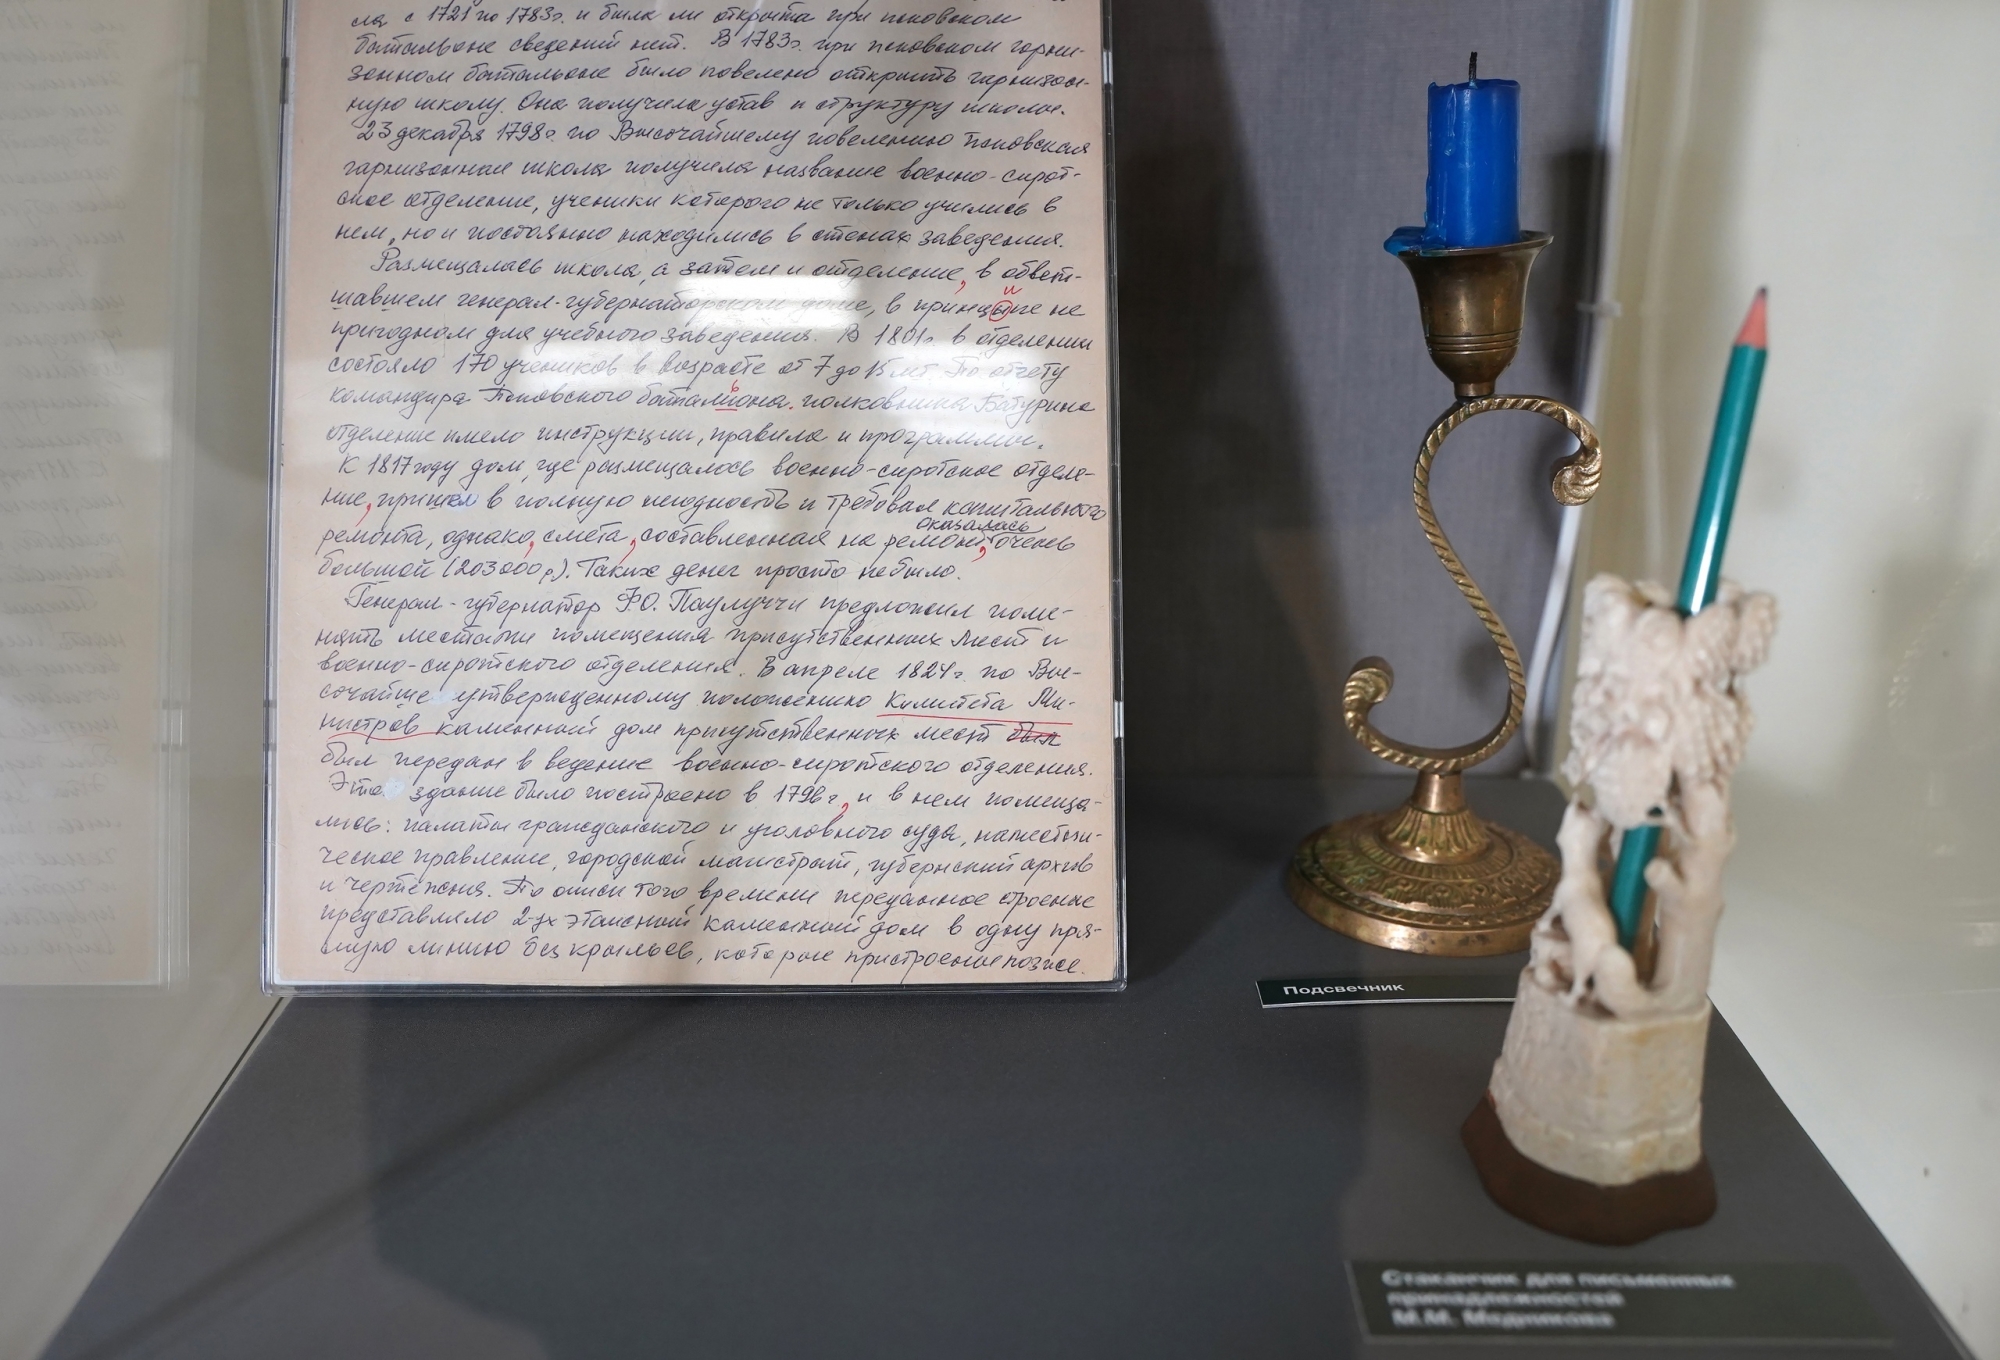 ла с 1721 по 1783г. и была ли открыта при псковском
батальоне сведений нет. В 1783г. при псковском гарни-
зонном батальоне было повелено открыть гарнизон-
ную школу. Она получила устав и структуру школы.
23 декабря 1798г. по Высочайшему повелению Псковская
гарнизонная школа получила название военно-сирот-
ское отделение, ученики которого не только учились в
нем, но и постоянно находились в стенах заведения.
Размещалась школа, а затем и отделение, в обвет-
шавшем генерал-губернаторском доме, в принцыпе не
и
пригодном для учебного заведения. В 1801г. в отделении
состояло 170 учеников в возрасте от 7 до 15 лет. По отчету
командира Псковского баталиона полковника Батурина
ь
отделение имело инструкции, правила и программы.
К 1817 году дом, где размещалось военно-сиротское отделе-
ние, пришел в полную негодность и требовал капитального
ремонта, однако, смета, составленная на ремонт, оказалась очень
большой (203000 р.). Таких денег просто не было.
Генерал-губернатор Ф.О. Паулуччи предложил поме-
нять местами помещения присутственных мест и
военно-сиротского отделения. В апреле 1824г. по Вы-
сочайше утвержденному положению Комитета Ми-
нистров каменный дом присутственных мест был
был передан в ведение военно-сиротского отделения.
Это здание было построено в 1796г, и в нем помеща-
лись: палаты гражданского и уголовного суда, наместни-
ческое правление, городской магистрат, губернский архив
и чертежная. По описи того времени переданное строение
представляло 2-ух этажный каменный дом в одну пря-
мую линию без крыльев, которые пристроены позже.
Подсвечник
Стаканчик для письменных
принадлежностей
М.М. Медникова